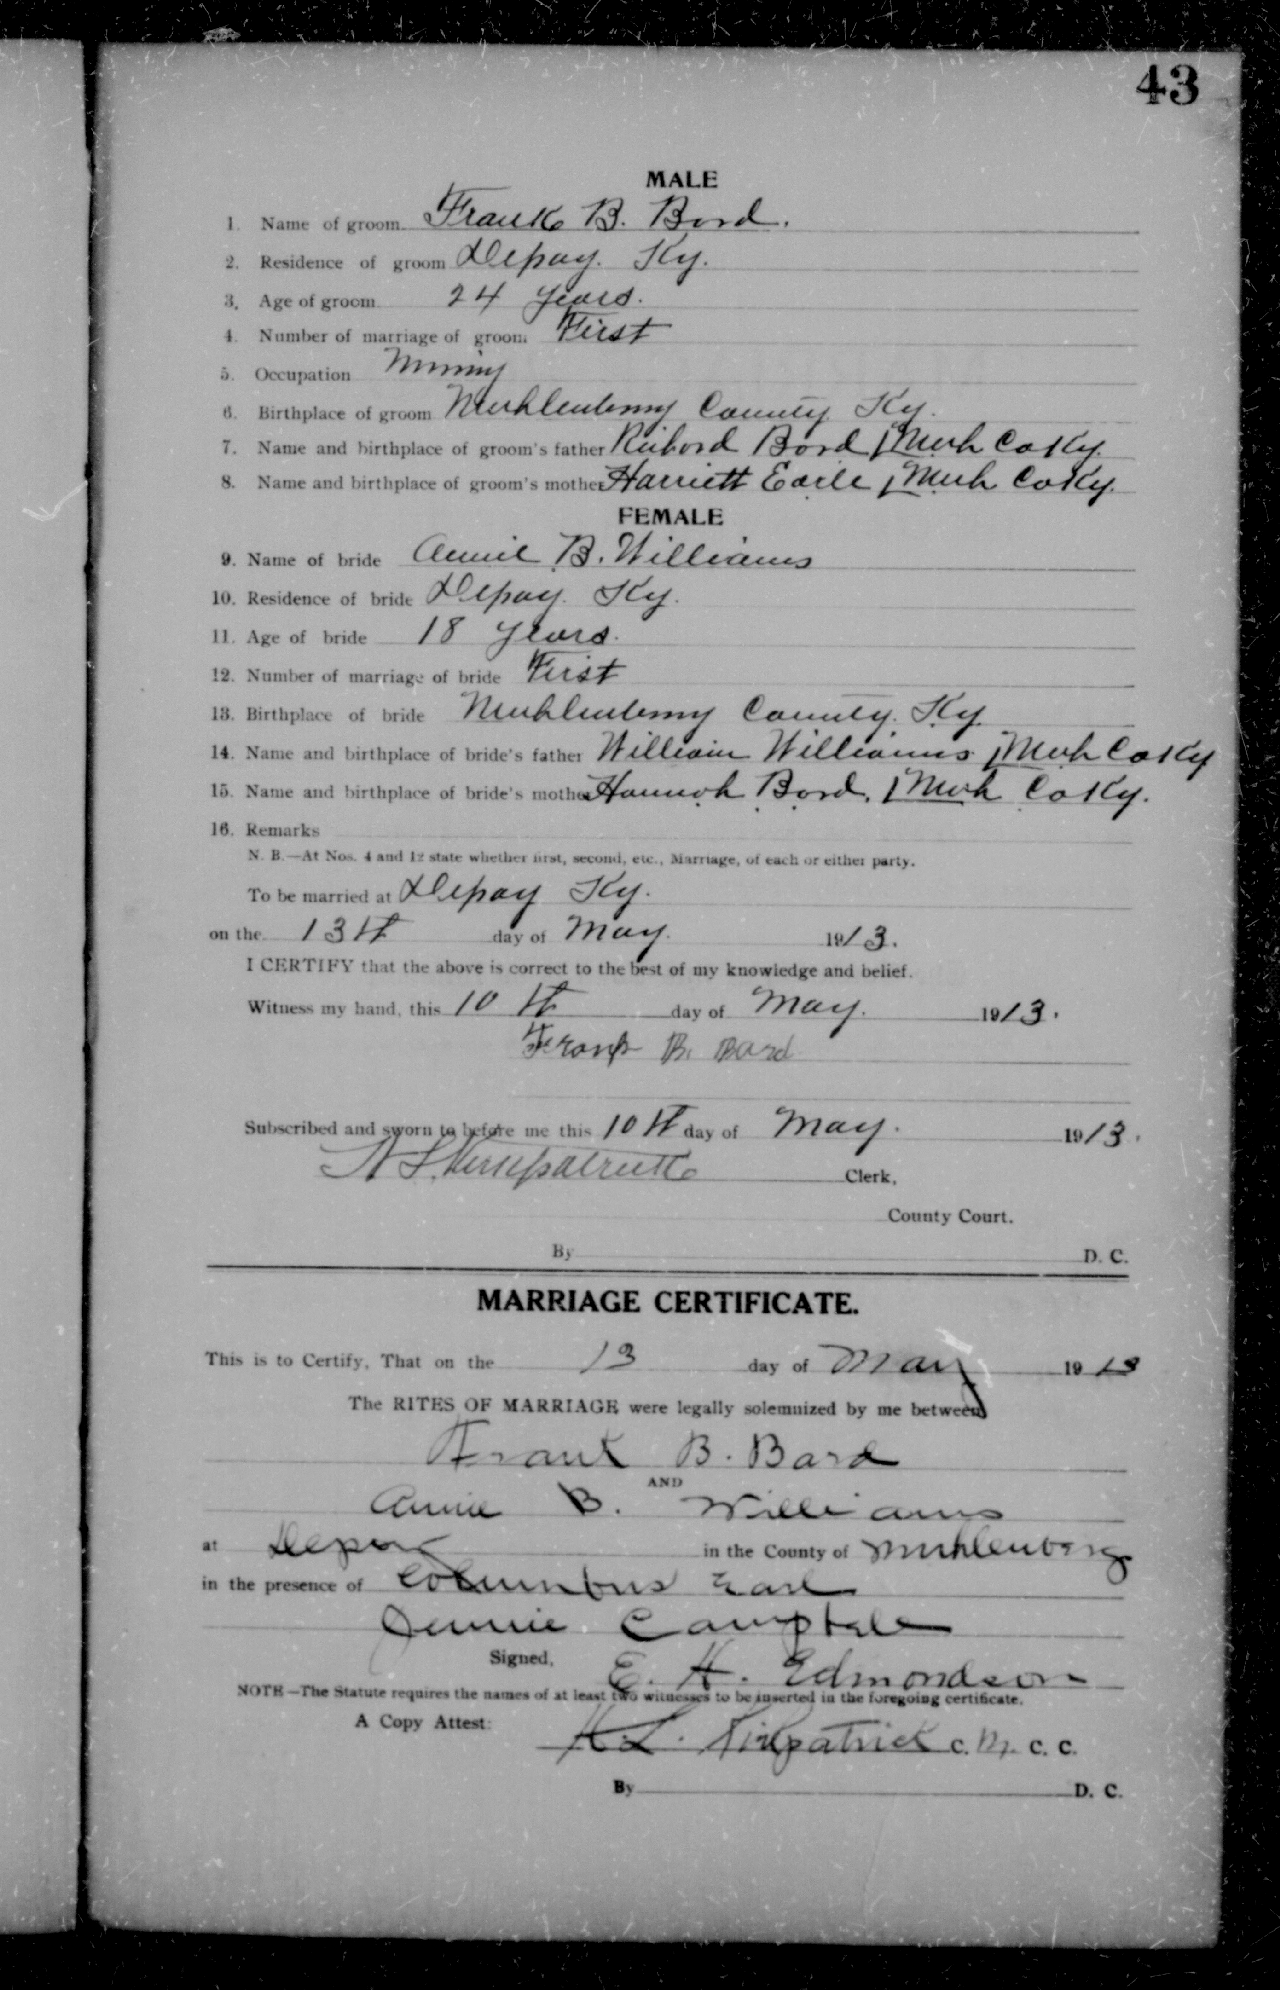 43
MALE
1. Name of groom Frank B. Bard.
2. Residence of groom Depoy. Ky.
3. Age of groom 24 years.
4. Number of marriage of groom First
5. Occupation Mining
6. Birthplace of groom Muhlenberg County Ky.
7. Name and birthplace of groom's father Richard Bard / Muh Co Ky.
8. Name and birthplace of groom's mother Harriett Earle / Muh Co Ky.
FEMALE
9. Name of bride Annie B. Williams
10. Residence of bride Depoy. Ky.
11. Age of bride 18 years.
12. Number of marriage of bride First
13. Birthplace of bride Muhlenberg County. Ky.
14. Name and birthplace of bride's father William Williams / Muh Co Ky
15. Name and birthplace of bride's mother Hannah Bard, / Muh Co Ky.
16. Remarks
N. B.—At Nos. 4 and 12 state whether first, second, etc., Marriage, of each or either party.
To be married at Depoy Ky.
on the 13th day of May. 1913.
I CERTIFY that the above is correct to the best of my knowledge and belief.
Witness my hand, this 10th day of May. 1913.
Frank B. Bard
Subscribed and sworn to before me this 10th day of May. 1913.
Kirkpatrick Clerk,
County Court.
By D. C.
MARRIAGE CERTIFICATE.
This is to Certify, That on the 13 day of May 1913
The RITES OF MARRIAGE were legally solemnized by me between
Frank B. Bard
AND
Annie B. Williams
at Depoy in the County of Muhlenberg
in the presence of Columbus Earl
Jennie
Signed, E. H. Edmondson
NOTE—The Statute requires the names of at least two witnesses to be inserted in the foregoing certificate.
A Copy Attest:
Kirkpatrick C. M. C. C.
By D. C.